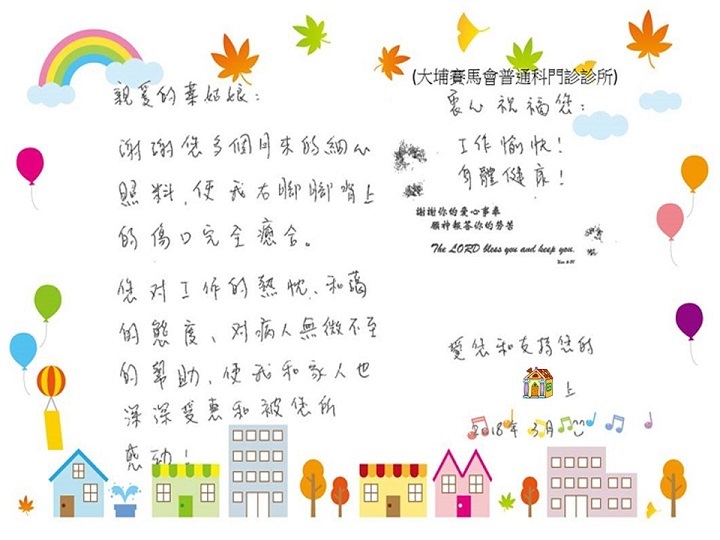 (大埔賽馬會普通科門診診所)
親愛的葉姑娘：
謝謝您多個月來的細心
照料，使我右腳腳背上
的傷口完全癒合。
您對工作的熱忱、和藹
的態度、對病人無微不至
的幫助，使我和家人也
深深受惠和被您所
感動！
衷心祝福您：
工作愉快！
身體健康！
謝謝你的愛心事奉
願神報答你的勞苦
The LORD bless you and keep you.
愛您和支持您的
上
2018年3月